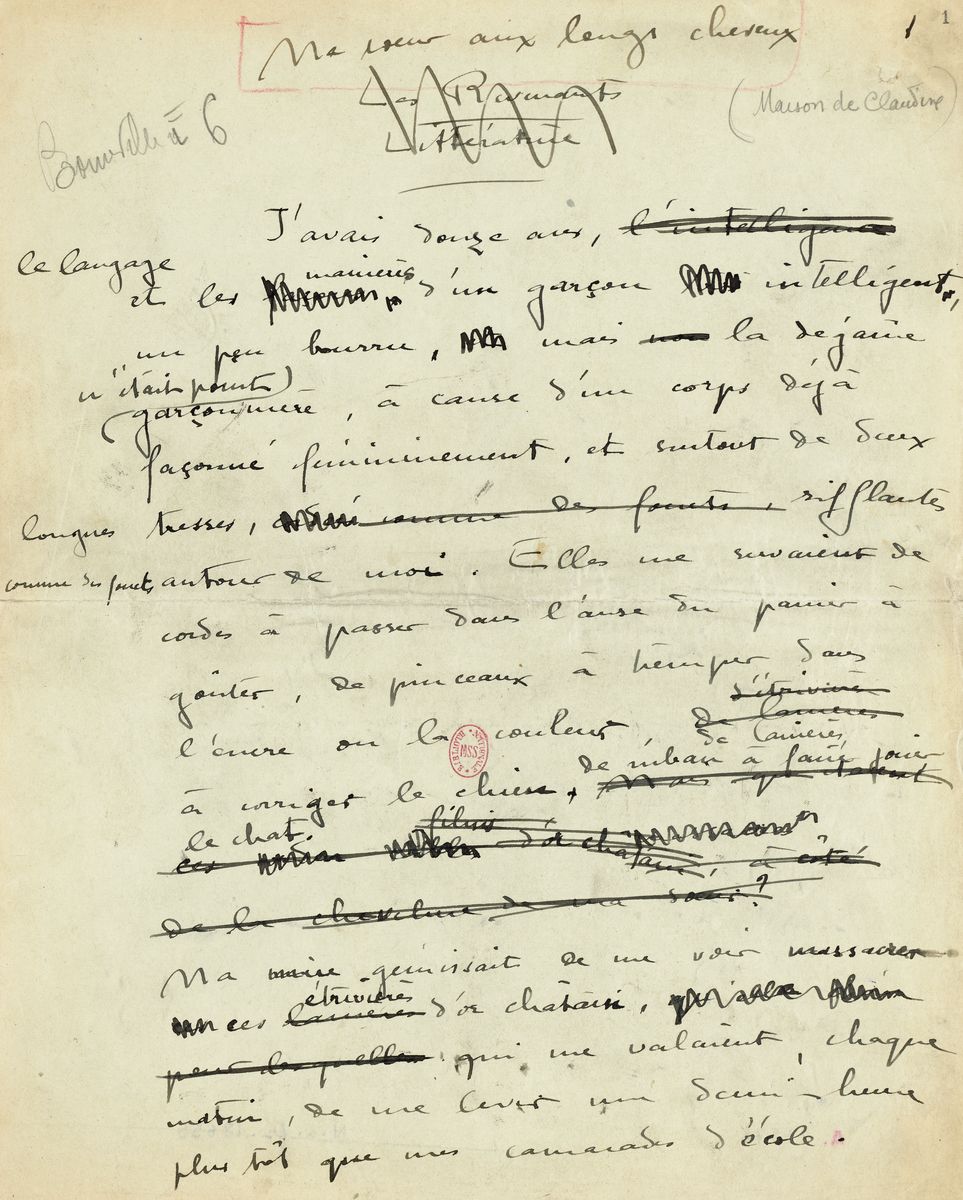 1
Ma sœur aux longs cheveux
Les Rimants
(Maison de Claudine)
Littérature
à 6
J'avais douze ans, l'intelligence
le langage
et les manières d'un garçon intelligent,
un peu bourru, mais non la dégaine
n'était point
garçonnière, à cause d'un corps déjà
façonné fémininement, et surtout de deux
longues tresses, comme des fouets, sifflantes
comme des fouets autour de moi. Elles me servaient de
cordes à passer dans l'anse du panier à
goûter, de pinceaux à tremper dans
d'étrivière
de lanières
l'encre ou la couleur, de lanières
de ruban à faire jouer
à corriger le chien, Mais qu'étaient
le chat.
filins
ces d'or châtain, à côté
de la chevelure de ma sœur?
Ma mère gémissait de me voir massacrer
étrivières
ces lanières d'or châtain,
pour lesquelles qui me valaient, chaque
matin, de me lever une demi-heure
plus tôt que mes camarades d'école.
BIBLIOTH. NATIONALE
MSS